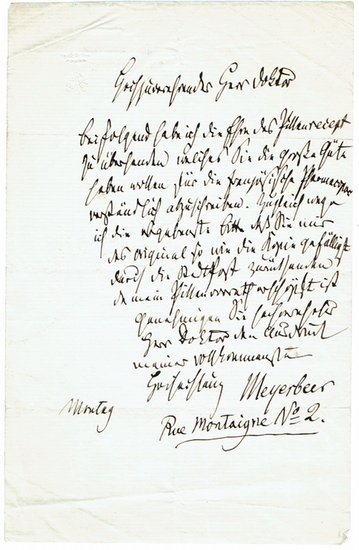 Hochzuverehrender Herr Doktor
beifolgend habe ich die Ehre das Pillenrecept
zu übersenden welches Sie die große Güte
haben wollen für die französische Pharmacopoe
verständlich abzuschreiben. Zugleich wage
ich die ergebenste Bitte daß Sie mir
das original so wie die Kopie gefälligst
durch die Stadtpost zurücksenden
da mein Pillenvorrath erschöpft ist
genehmigen Sie hochverehrter
Herr Doktor den Ausdruck
meiner vollkommensten
Hochachtung Meyerbeer
Montag
Rue Montaigne No 2.